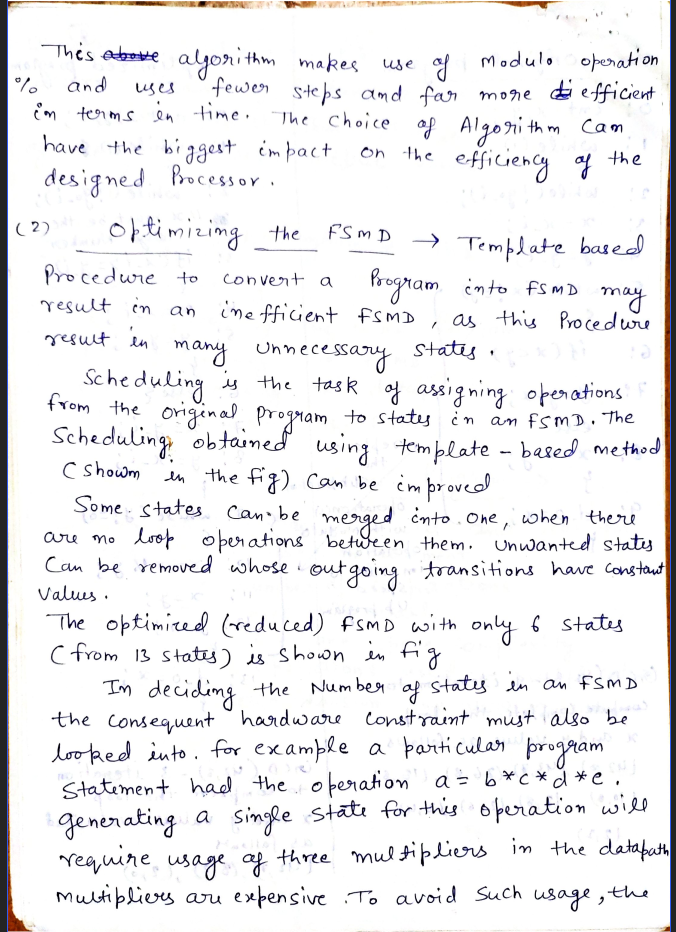 This above algorithm makes use of Modulo operation
% and uses fewer steps and far more efficient
in terms in time. The choice of Algorithm Can
have the biggest impact on the efficiency of the
designed Processor.
(2) Optimizing the FSMD → Template based
Procedure to convert a Program into FSMD may
result in an inefficient FSMD, as this Procedure
result in many Unnecessary states.
Scheduling is the task of assigning operations
from the original program to states in an FSMD. The
Scheduling obtained using template-based method
(shown in the fig) Can be improved
Some states can be merged into one, when there
are no loop operations between them. Unwanted states
Can be removed whose outgoing transitions have constant
values.
The optimized (reduced) FSMD with only 6 states
(from 13 states) is shown in fig
In deciding the Number of states in an FSMD
the consequent hardware constraint must also be
looked into. for example a particular program
Statement had the operation a = b*c*d*e.
generating a single state for this operation will
require usage of three multipliers in the datapath
multipliers are expensive. To avoid such usage, the